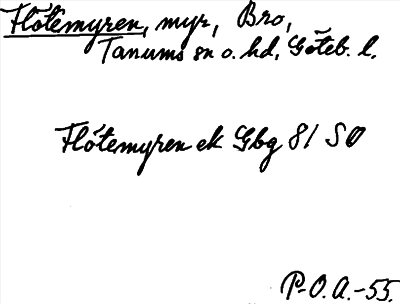 Flötemyren, myr, Bro,
Tanums sn o. hd, Göteb. l.
Flötemyren ek Gbg 81 SO
P-O.A.-55.